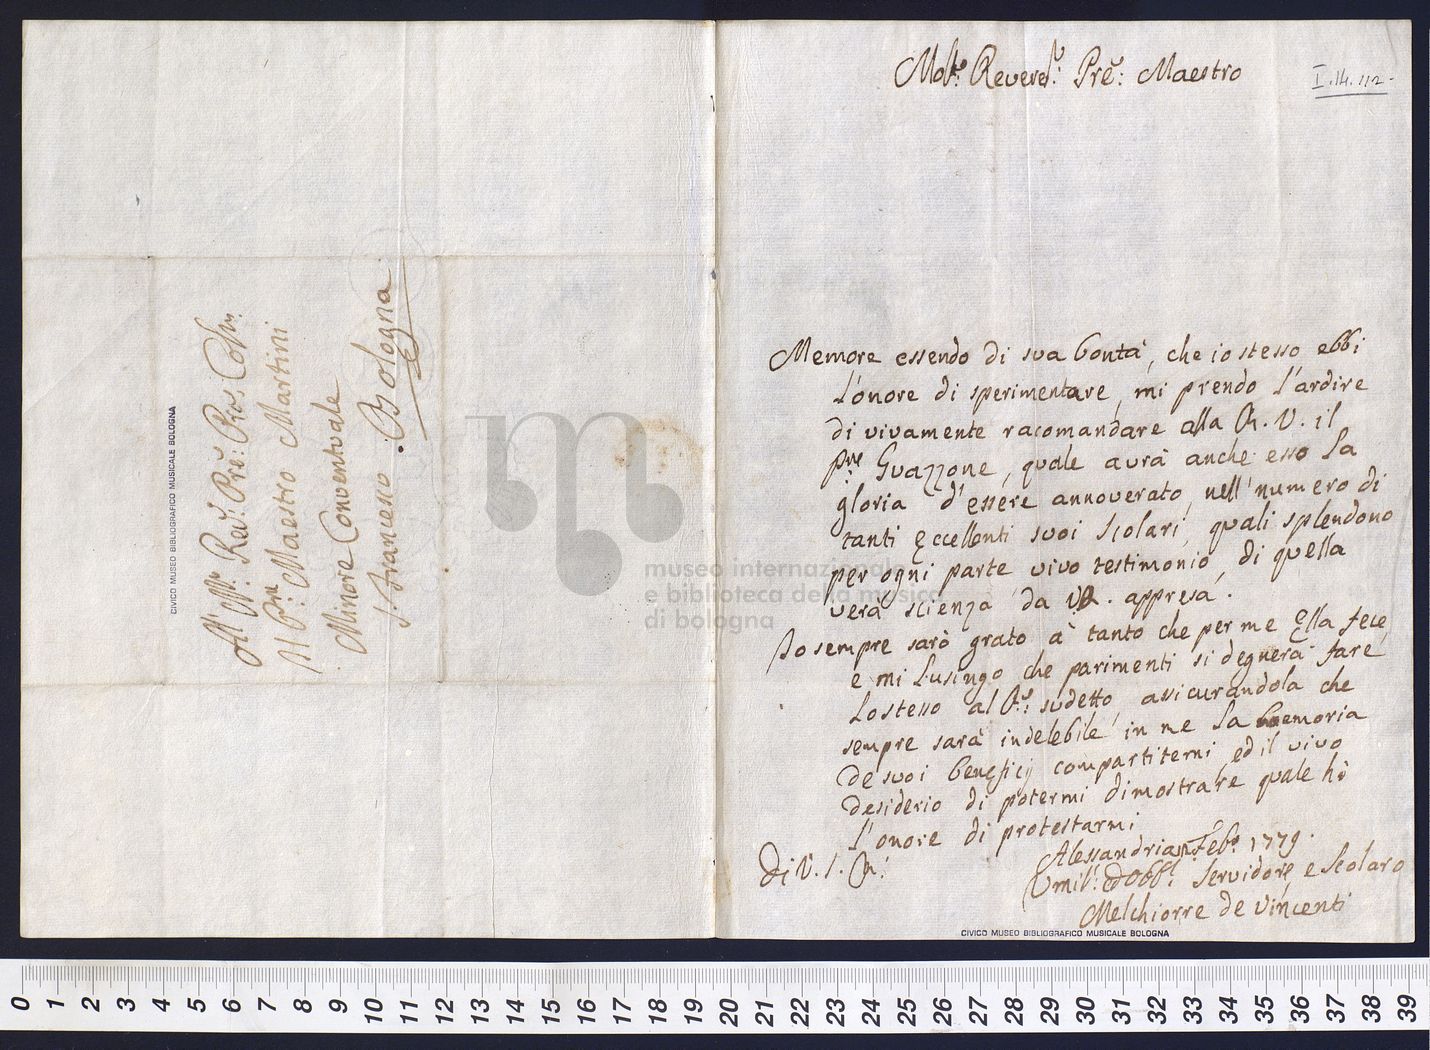 Molto. Revered.: Pre: Maestro
I.14.112.
Memore essendo di sua bontà, che io stesso ebbi
l'onore di sperimentare, mi prendo l'ardire
di vivamente racomandare alla R. V. il
Pre Guazzone, quale avrà anche esso la
gloria d'essere annoverato nell'numero di
tanti eccellenti suoi scolari, quali splendono
per ogni parte vivo testimonio, di quella
vera scienza da VR. appresa.
Io sempre sarò grato à tanto che per me ella fece
e mi lusingo che parimenti si degnerà fare
lo stesso al P. sudetto, assicurandola che
sempre sarà indelebile in me la memoria
de suoi beneficij compartitemi, ed il vivo
desiderio di potermi dimostrare quale hò
l'onore di protestarmi
Di V. S. R.
Alessandria Feb. 1779.
Umil. ed Obb. Servidore, e Scolaro
Melchiorre de Vincenti
CIVICO MUSEO BIBLIOGRAFICO MUSICALE BOLOGNA
Al M. Rev. Pre: Pro: Col.
Il Pre: Maestro Martini
Minore Conventuale
S. Francesco. Bologna
CIVICO MUSEO BIBLIOGRAFICO MUSICALE BOLOGNA
museo internazionale
e biblioteca della musica
di bologna
0 1 2 3 4 5 6 7 8 9 10 11 12 13 14 15 16 17 18 19 20 21 22 23 24 25 26 27 28 29 30 31 32 33 34 35 36 37 38 39